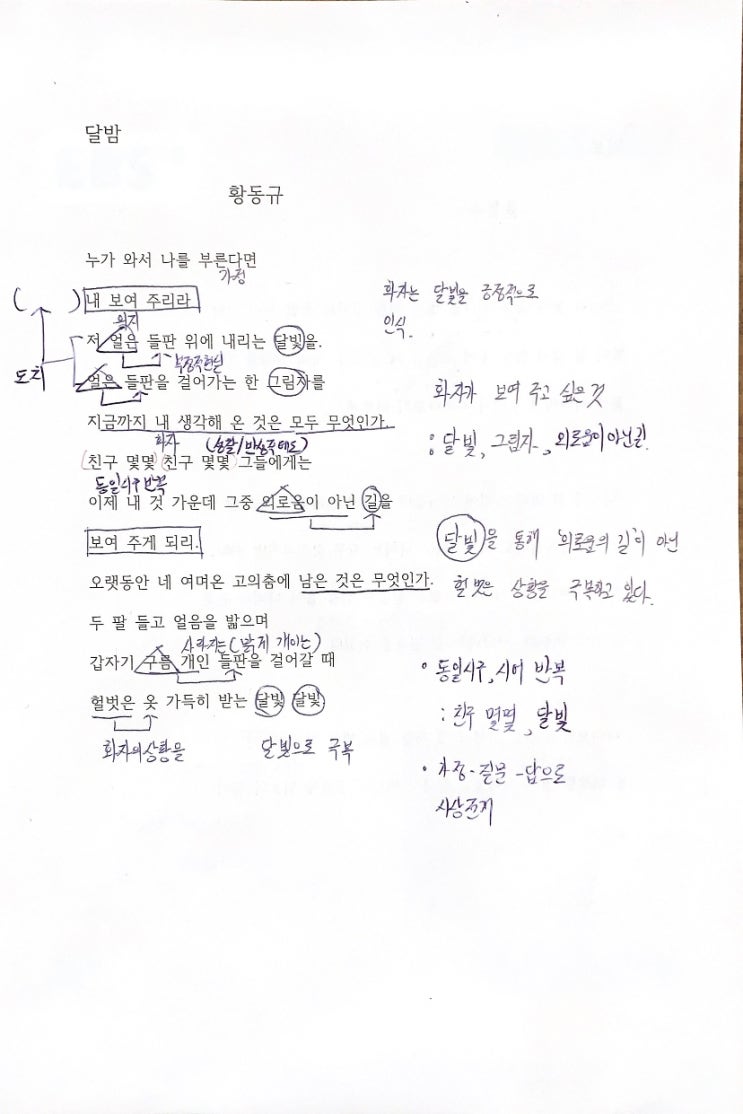 달밤
황동규
누가 와서 나를 부른다면
가정
( ) 내 보여 주리라
의지
저 얼은 들판 위에 내리는 달빛을.
부정적현실
도치
얼은 들판을 걸어가는 한 그림자를
지금까지 내 생각해 온 것은 모두 무엇인가.
화자 (성찰/반성적태도)
(친구 몇몇 친구 몇몇) 그들에게는
동일시구 반복
이제 내 것 가운데 그중 외로움이 아닌 길을
보여 주게 되리.
오랫동안 네 여며온 고의춤에 남은 것은 무엇인가.
두 팔 들고 얼음을 밟으며
사라지는 (맑게 개이는)
갑자기 구름 개인 들판을 걸어갈 때
헐벗은 옷 가득히 받는 달빛 달빛
화자의 상황을 달빛으로 극복
화자는 달빛을 긍정적으로
인식.
화자가 보여 주고 싶은 것
: 달빛, 그림자, 외로움이 아닌 길.
달빛을 통해 '외로움의 길'이 아닌
헐벗은 상황을 극복하고 있다.
• 동일시구, 시어 반복
: 친구 몇몇, 달빛
• 가정-질문-답으로
시상전개